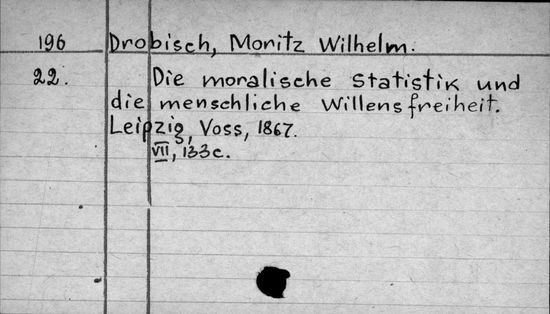 196 Drobisch, Moritz Wilhelm.
22. Die moralische Statistik und
die menschliche Willensfreiheit.
Leipzig, Voss, 1867.
VII, 133 c.